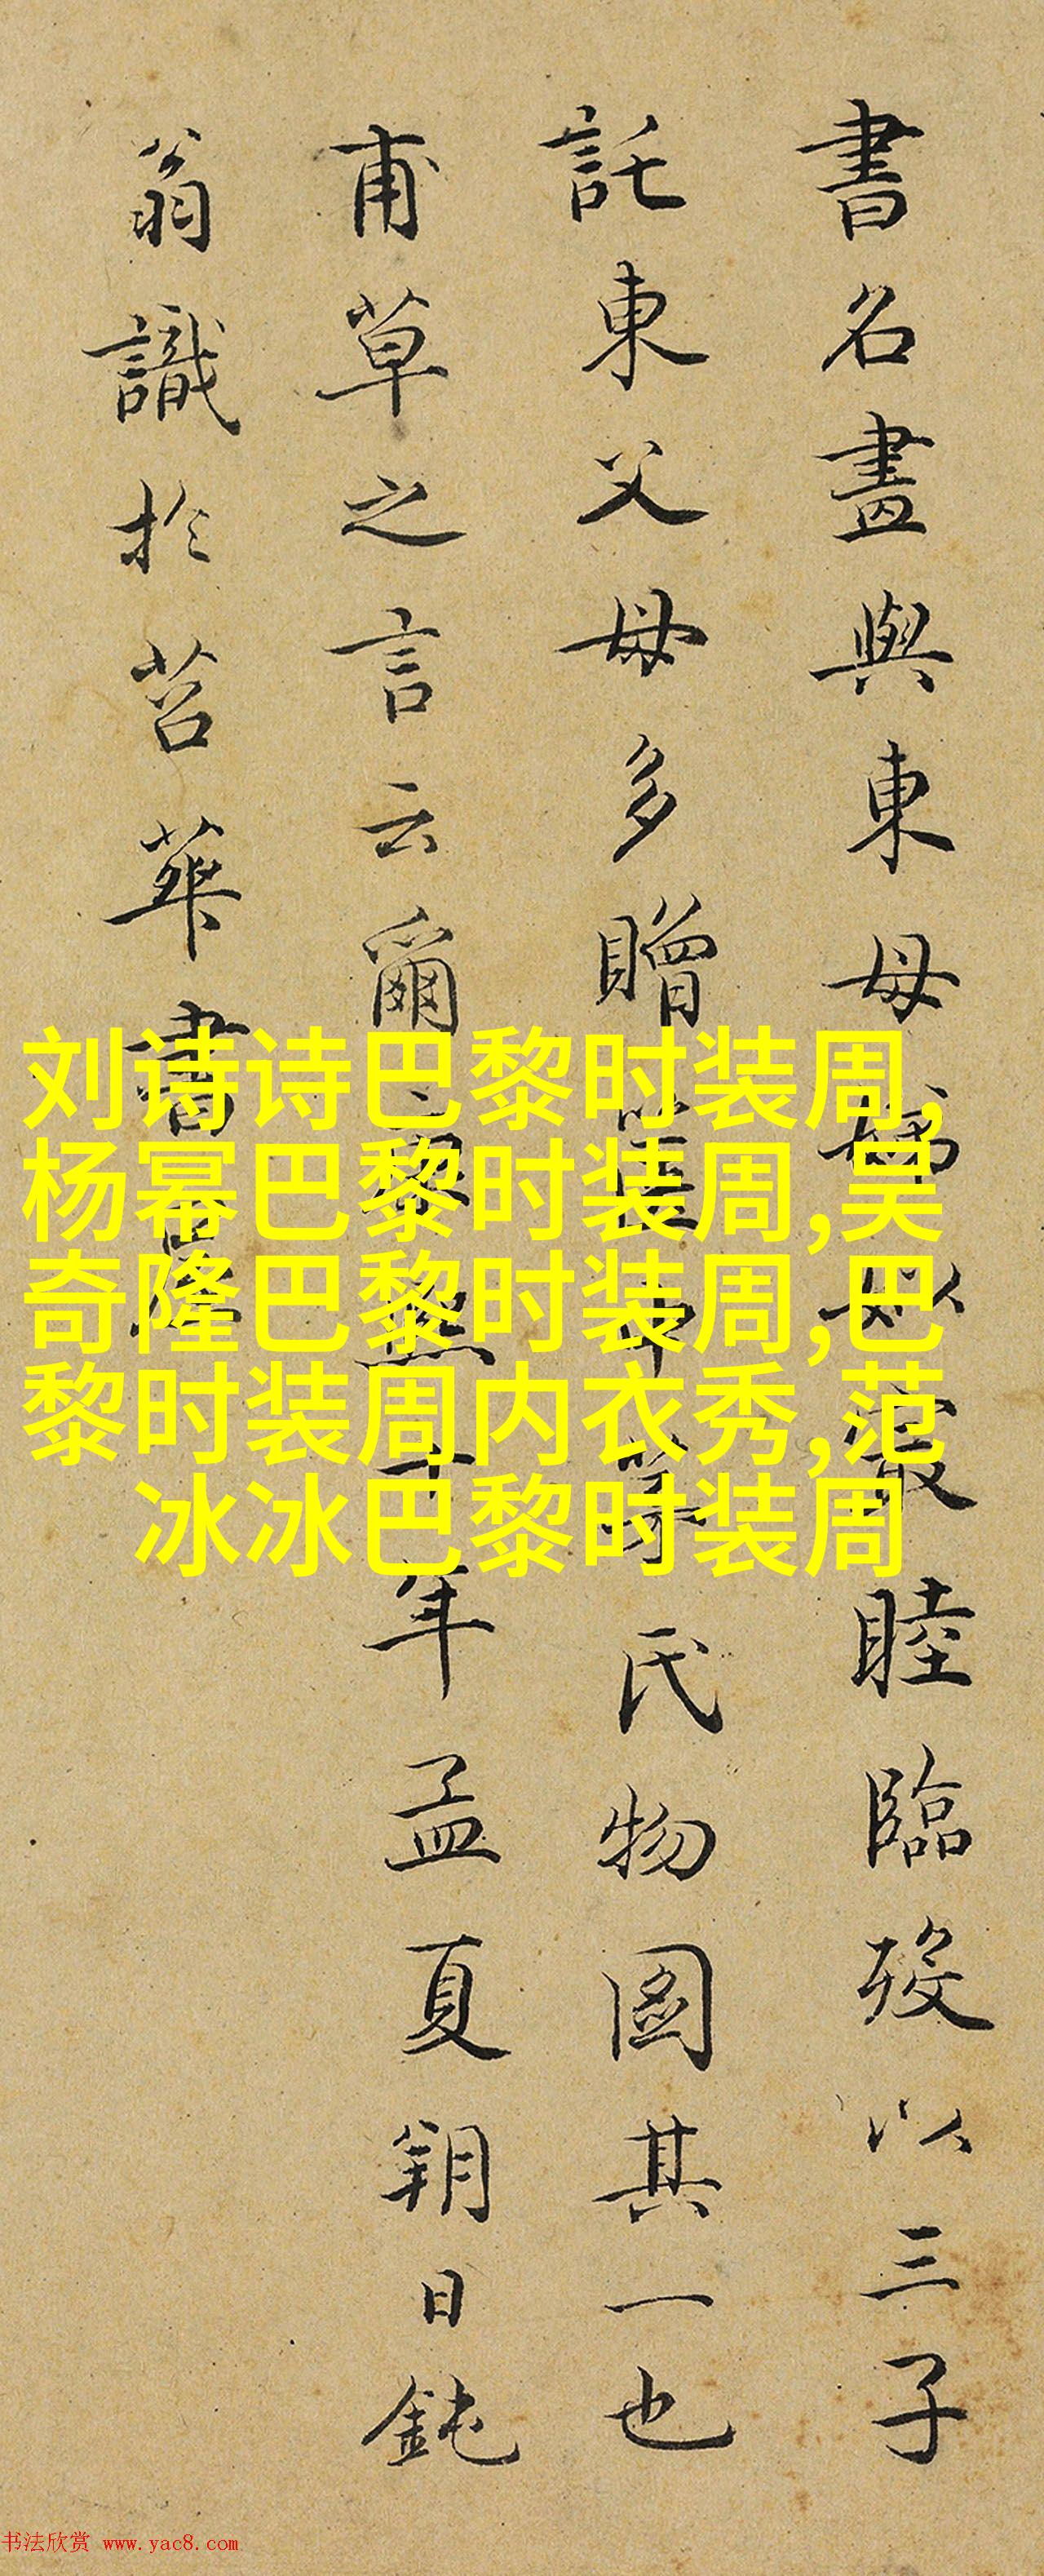 書名畫與東母娣姒最睦臨歿以三子
託東父母多贈氏物圖其一也
甫草之言云爾熙十年孟夏朔日鈍
翁識於苕華書屋
刘诗诗巴黎时装周,
杨幂巴黎时装周,吴
奇隆巴黎时装周,巴
黎时装周内衣秀,范
冰冰巴黎时装周
书法欣赏 www.yac8.com